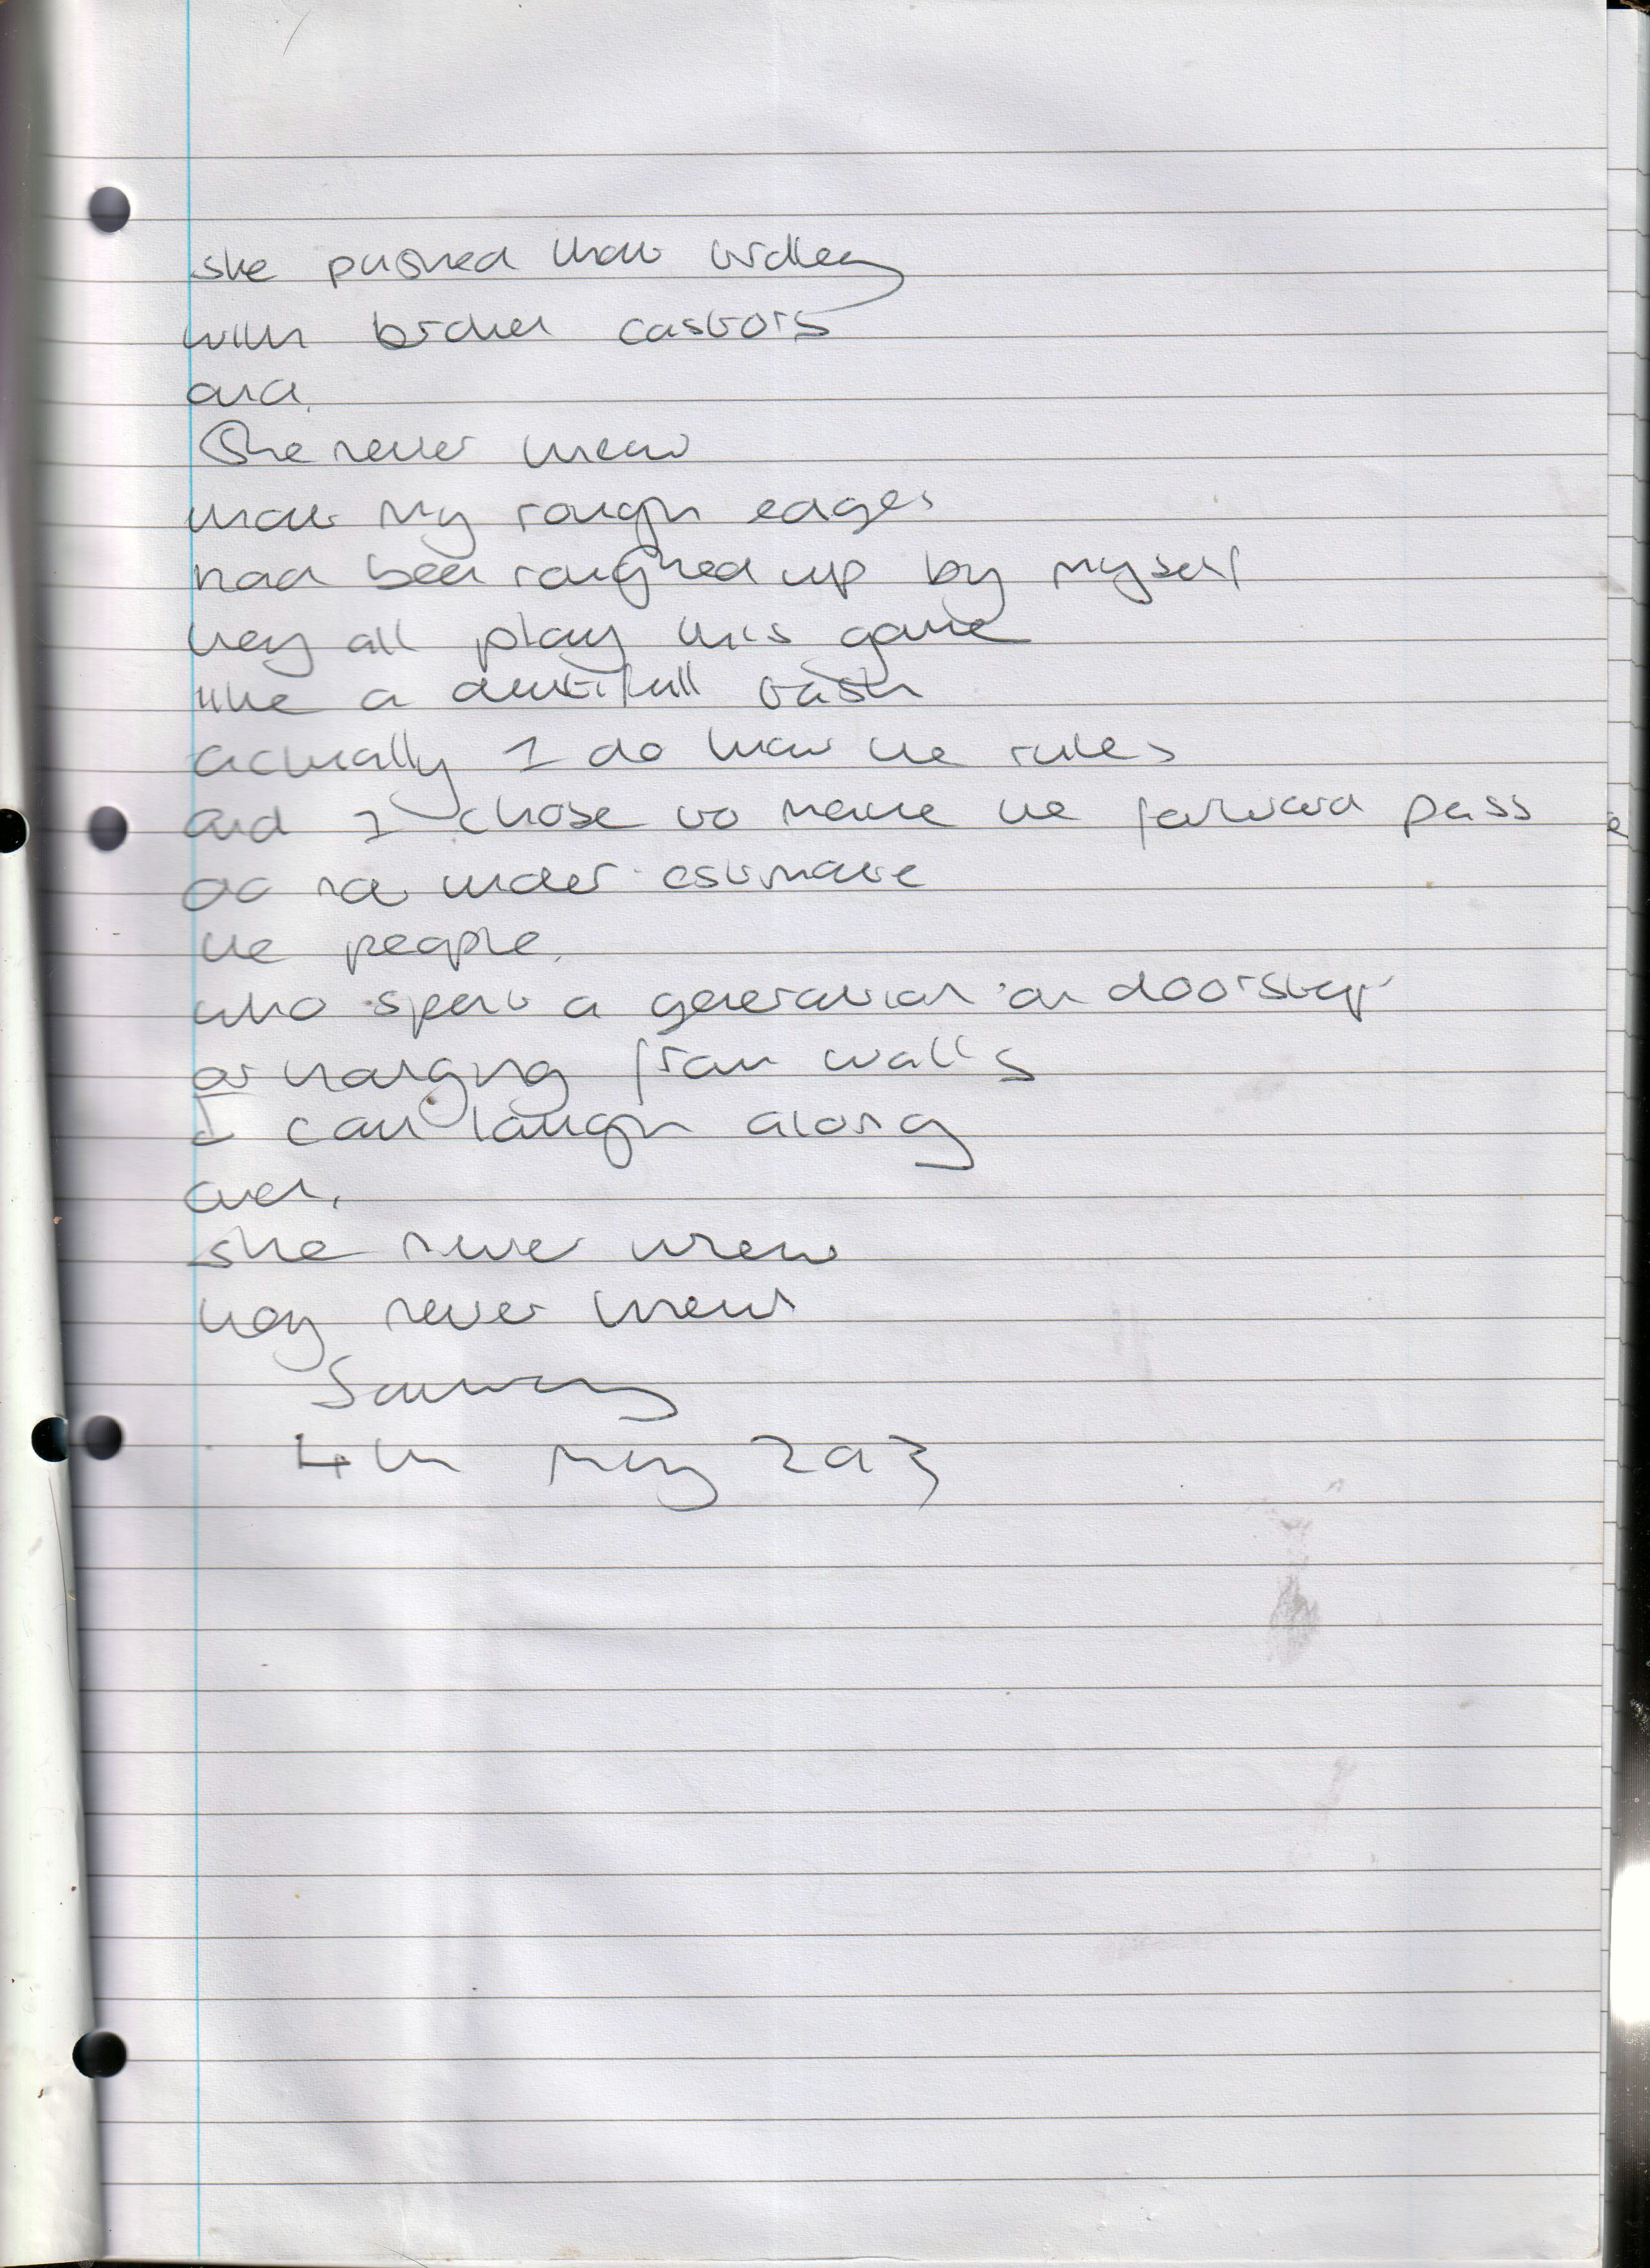 she pushed that trolley
with broken castors
and.
She never knew
that my rough edges
had been roughed up by myself
they all play this game
like a dutifull task
actually I do know the rules
and I chose to make the forward pass
do not under estimate
the people.
who spent a generation on doorstep
or hanging from walls
I can laugh along
and.
she never knew
they never knew
4th May